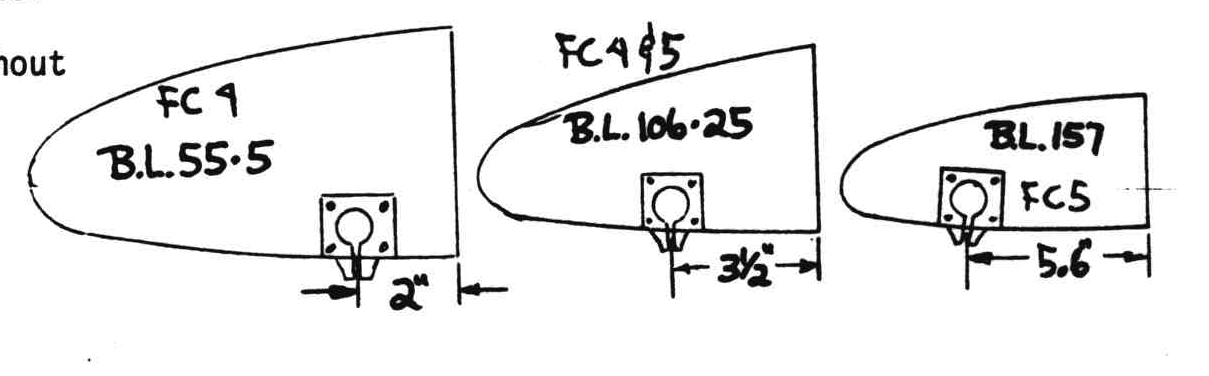 FC 4
B.L. 55.5
2"
FC 4 & 5
B.L. 106.25
3½"
B.L. 157
FC 5
5.6"